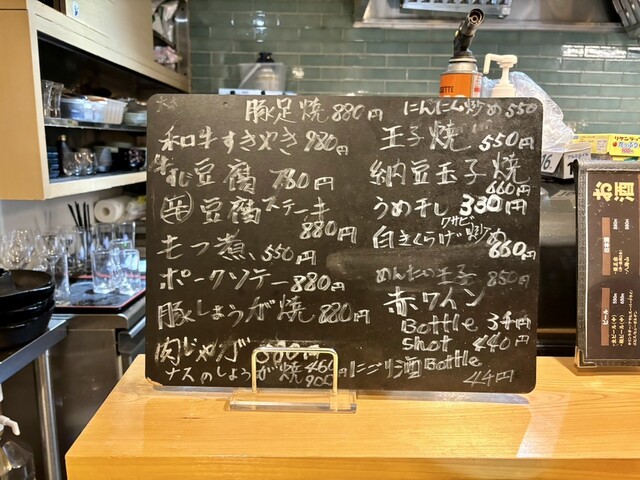 豚足焼 880円
にんにく炒め 550
和牛すきやき 980円
玉子焼 550円
牛すじ豆腐 780円
納豆玉子焼 660円
牛豆腐ステーキ 880円
うめ干し 330円
もつ煮 550円
白きくらげワサビ炒め 660円
ポークソテー 880円
めんたい玉子 850円
豚しょうが焼 880円
赤ワイン
Bottle 3千円
Shot 440円
肉じゃが
ナスのしょうが焼
にごり酒 Bottle
4千円
お酒